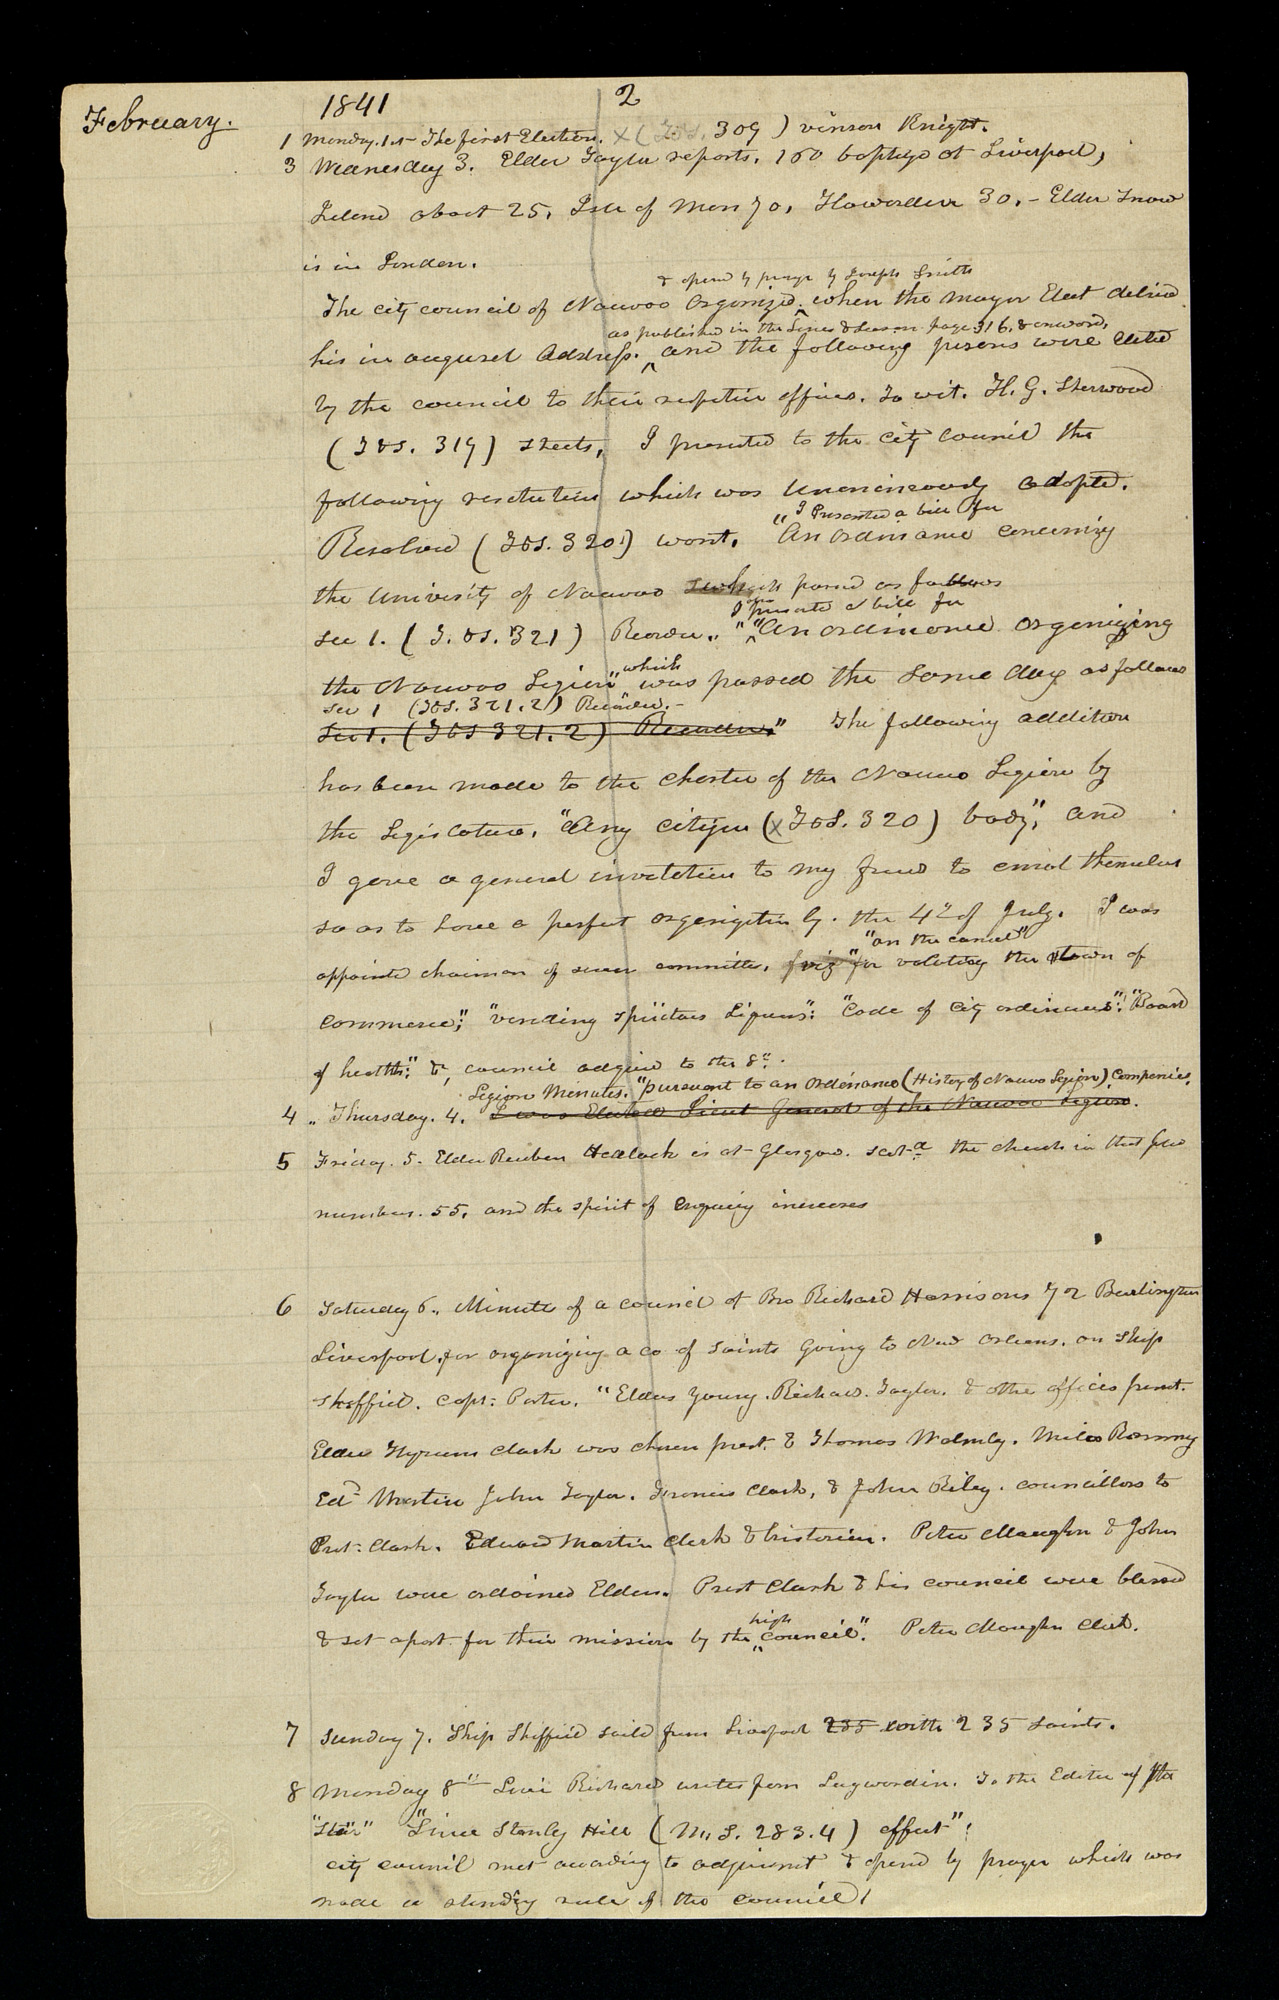 February.
1841
2
1 Monday. 1st The first Election. × (T&S. 309) vinson Knight.
3 Wednesday 3. Elder Taylor reports. 160 baptized at Liverpool,
Ireland about 25, Isle of Man 70, Hawarden 30. - Elder Snow
is in London.
& opend by prayer by Joseph Smith
The city council of Nauvoo Organized. when the mayor Elect delivd
as published in the Times & Season page 316, & onword,
his in augural Address. and the following persons were elected
by the council to their respective offices. To wit. H. G. Sherwood
(T&S. 319) streets, I presented to the City Council the
following resolution which was Unanimously adopted.
I Presented a bill for
Resolved (T&S. 320) wont. "An ordinance concerning
the University of Nauvoo which passed as follows
I also presented a bill for
sec 1. (T. &S. 321) Recorder. " "An ordinance organizing
which
the Nauvoo Legion" was passed the same day as follows
sec 1 (T&S. 321.2) Recorder. -
Sec 1. (T&S 321.2) Recorder." The following addition
has been made to the charter of the Nauvoo Legion by
the Legislature. "Any citizen (× T&S. 320) body," and
I gave a general invitation to my friend to enrol themselves
so as to have a perfect organization by. the 4th of July. I was
"on the canal"
appointed chairman of seven committee. viz "for vacating the town of
commerce;" "vending spiritous Liquors": "Code of city ordinances": "Board
of health:" &, council adjurd to the 8th.
Legion Minutes. "pursuant to an ordinance (History of Nauvoo Legion) Companies.
4 " Thursday. 4. I was Elected Lieut General of the Nauvoo Legion.
5 Friday. 5. Elder Reuben Hedlock is at Glasgow. Scotd the church in that place
numbers. 55. and the spirit of Enquiry increases
6 Saturday 6., Minutes of a council at Bro Richard Harrisons 72 Burlington
Liverpool, for organizing a co of saints Going to New Orleans. on Ship
Sheffield. Capt: Porter. "Elders Young. Richards. Taylor. & other officers present.
Elder Hyrum Clark was chosen prest. & Thomas Walmsly. Miles Romney
Edd Martin John Taylor. Francis Clark, & John Riley. councillors to
Prest. Clark. Edward Martin clerk & historian. Peter Maughn & John
Taylor were ordained Elders. Prest Clark & his council were blessed
high
& set apart for their mission by the "council". Peter Maughn Clerk.
7 Sunday 7. Ship Sheffield saild from Liverpool 235 with 235 saints.
8 Monday 8th Levi Richards writes from Lugwardin. To the Editor of the
"Star" "Since Stanly Hill (M. S. 283.4) effect".
city council met according to adjournmt & opend by prayer which was
made a standing rule of the council.